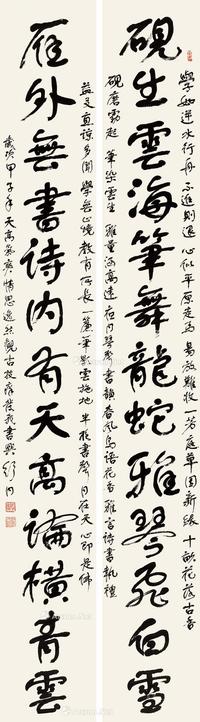 學如逆水行舟不進則退心似平原走馬易放難收一芳庭草圍新綠十畝花落古香
硯生雲海筆舞龍蛇雅琴飛白雪
硯磨霧起筆染雲生雅量涵高遠琴聲書韻春風鳥語花香雅言詩書執禮
益友直諒多聞學無止境教有所長一簾花影雲拖地半夜書聲月在天心即是佛
雁外無書詩內有天高論橫青雲
歲次甲子年天高氣爽情思逸然觀古書興舒同